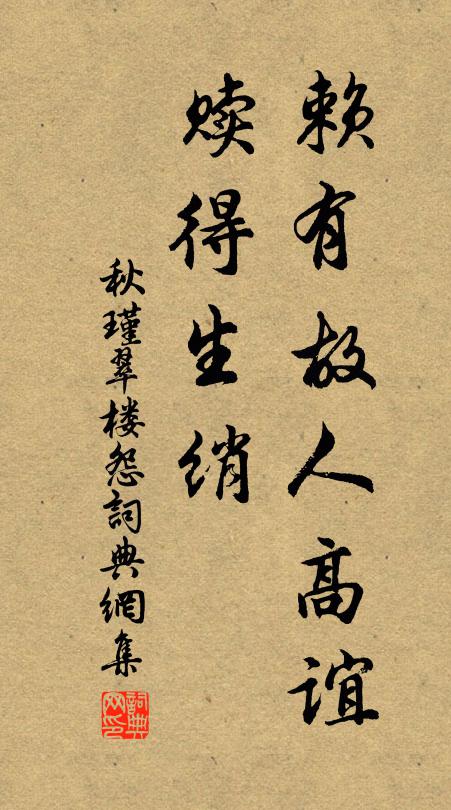 赖有故人高谊
赎得生绡
秋瑾翠楼怨詞典網集
詞典网印